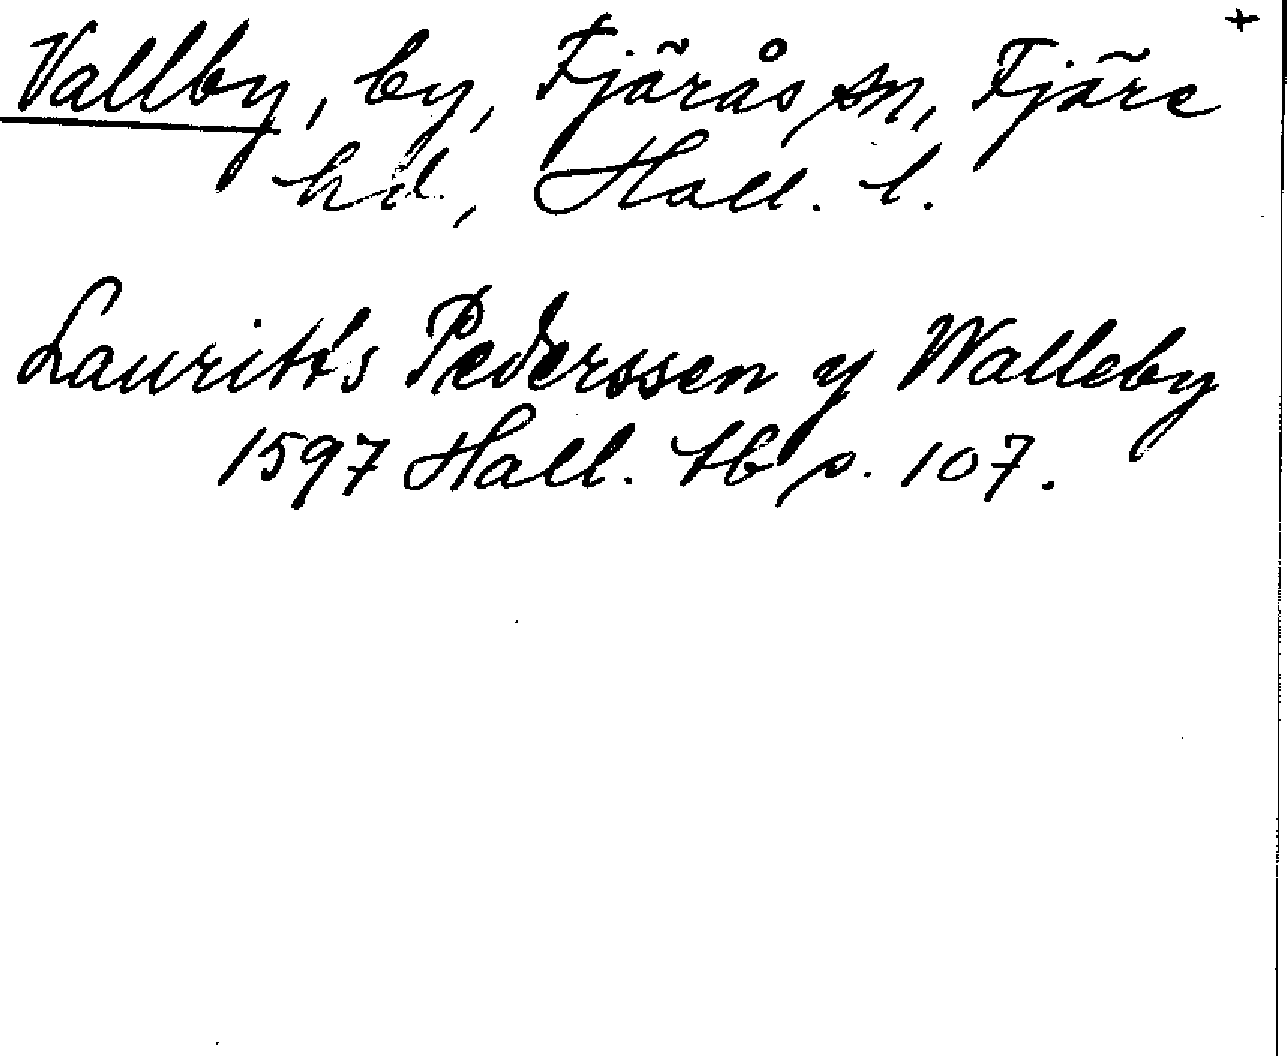 +
Vallby, by, Fjärås sn, Fjäre
hd, Hall. l.
Lauritts Pederssen y Walleby
1597 Hall. tb s. 107.